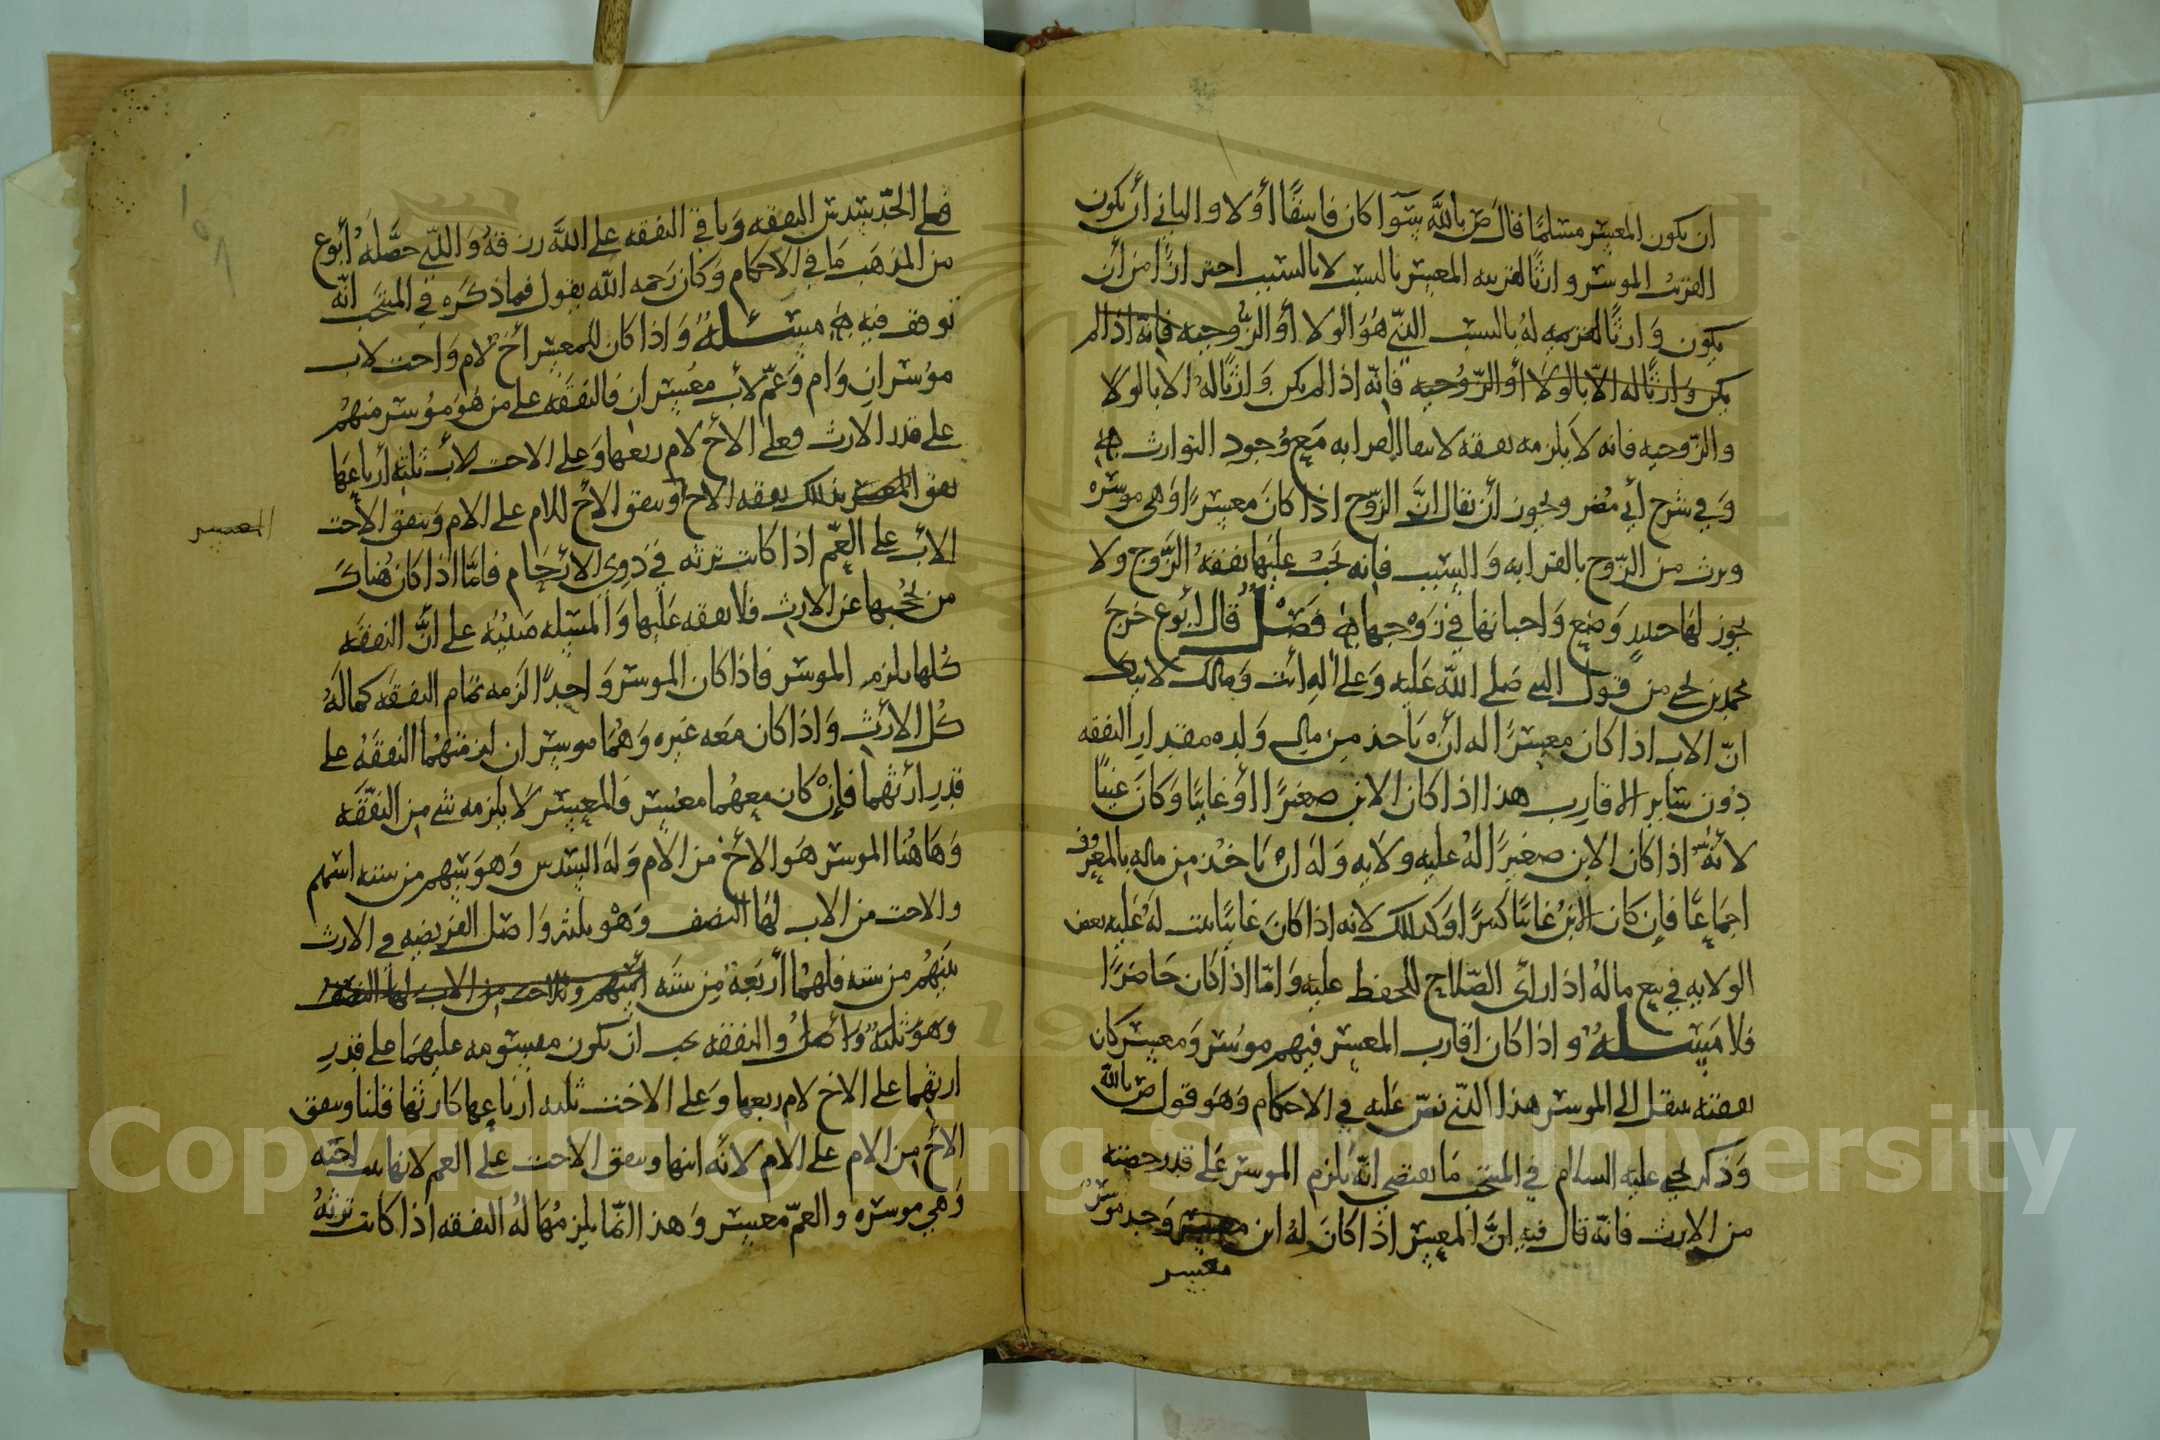 ان يكون المعسر مسلما فقال ص بالله سوا كان فاسقًا أو لا والثاني أن يكون
القريب الموسر وارثًا لقريبه المعسر بالنسب لا بالسبب احترازًا من أن
يكون وارثًا لقريبه له بالسبب الذي هو الولا أو الزوجيه فإنه اذا لم
يكن وارثًا له الا بالولا أو الزوجيه فانه اذا لم يكن وارثًا له الا بالولا
والزوجيه فانه لا يلزمه نفقه لانتفا القرابه مع وجود التوارث
وفي شرح أبي مضر ويجوز أن يقال انّ الزوج اذا كان معسرًا وهي موسره
وترث من الزوج بالقرابه والسبب فإنه تجب عليها نفقه الزوج ولا
يجوز لها وضع واجباتها في زوجها فصل قال أبو ع خرج
محمد بن يحيى من قول النبي صلى الله عليه وعلى اله أنت ومالك لابيك
انّ الاب اذا كان معسرًا له أن ياخذ من مال ولده مقدار النفقه
دون سائر الاقارب هذا اذا كان الابن صغيرًا أو غائبًا وكان غنيًا
لأنه اذا كان الابن صغيرًا له عليه ولايه وله ان ياخذ من ماله بالمعروف
اجماعًا فإن كان الابن غائبًا كبيرًا وكذلك لانه اذا كان غائبًا ثبت له عليه بعض
الولايه في بيع ماله اذا رأى الصلاح للحفظ عليه واما اذا كان حاضرًا
فلا مسئله واذا كان اقارب المعسر فيهم موسر ومعسر كان
نفقته تنتقل الى الموسر هذا الذي نص عليه في الاحكام وهو قول ص بالله
وذكر يحيى عليه السلام في المنتخب ما يقتضي انّه يلزم الموسر على قدر حصته
من الارث فانه قال فيه انّ المعسر اذا كان له ابن معسر وجد موسر
معسر
فعلى الجدّ سدس النفقه وباقي النفقه على الله رزقه والذي حصّله أبو ع
من المذهب ما في الاحكام وكان رحمه الله يقول فيما ذكره في المنتخب انّه
توقف فيه مسئله واذا كان للمعسر أخ لام واخت لاب
موسران وام وعمّ لأب معسران فالنفقه على من هو موسر منهم
على قدر الارث فعلى الأخ لام ربعها وعلى الاخت لأب ثلثه أرباعها
نفقه الاخ وينفق الأخ للام على الام وينفق الأخت
الأب على العمّ اذا كانت ترثه في ذوي الأرحام فامّا اذا كان هناك
من يحجبها عن الارث فلا نفقه عليها والمسئله مبنيه على أنّ النفقه
كلها يلزم الموسر فاذا كان الموسر واحدًا لزمه تمام النفقه كما له
كل الأرث واذا كان معه غيره وهما موسران لزمتهما النفقه على
قدر أرثهما فإن كان معهما معسر فالمعسر لا يلزمه شي من النفقه
وهاهنا الموسر هو الأخ من الأم وله السدس وهو سهم من سته اسهم
والاخت من الاب لها النصف وهو ثلثه واصل الفريضه في الارث
بينهم من سته فلهما أربعه من سته أسهم وللاخت من الاب لها النصف
وهو ثلثه وأصل والنفقه يجب ان يكون مقسومه عليهما على قدر
ارثهما على الاخ لام ربعها وعلى الاخت ثلثه ارباعها كارثها قلنا وينفق
الأخ من الام على الأم لأنه ابنها وينفق الاخت على العم لانها بنت اخيه
وهي موسره والعمّ معسر وهذا انّما يلزمها له النفقه اذا كانت ترثه
المعسر
١٥٨
Copyright © King Saud University